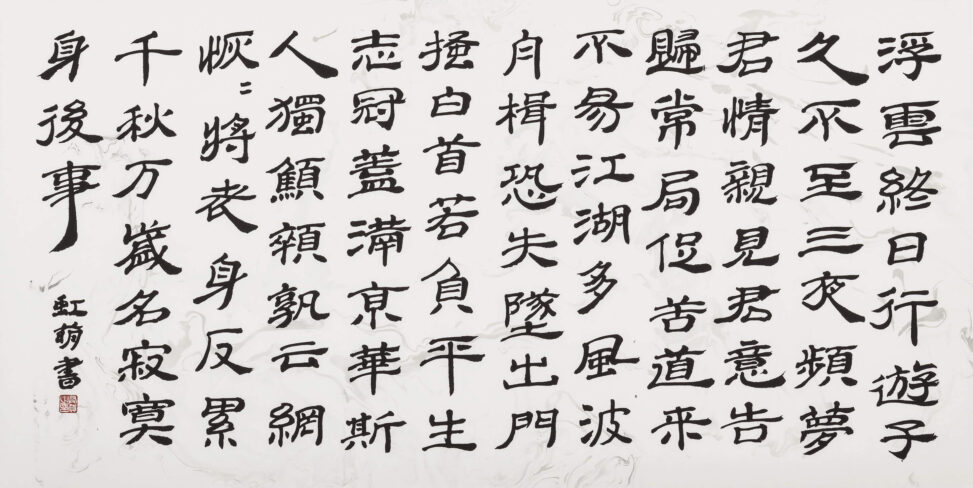 浮雲終日行遊子
久不至三夜頻夢
君情親見君意告
歸常局促苦道来
不易江湖多風波
舟楫恐失墜出門
搔白首若負平生
志冠蓋滿京華斯
人獨顦顇孰云網
恢〻將老身反累
千秋万歲名寂寞
身後事
虹書